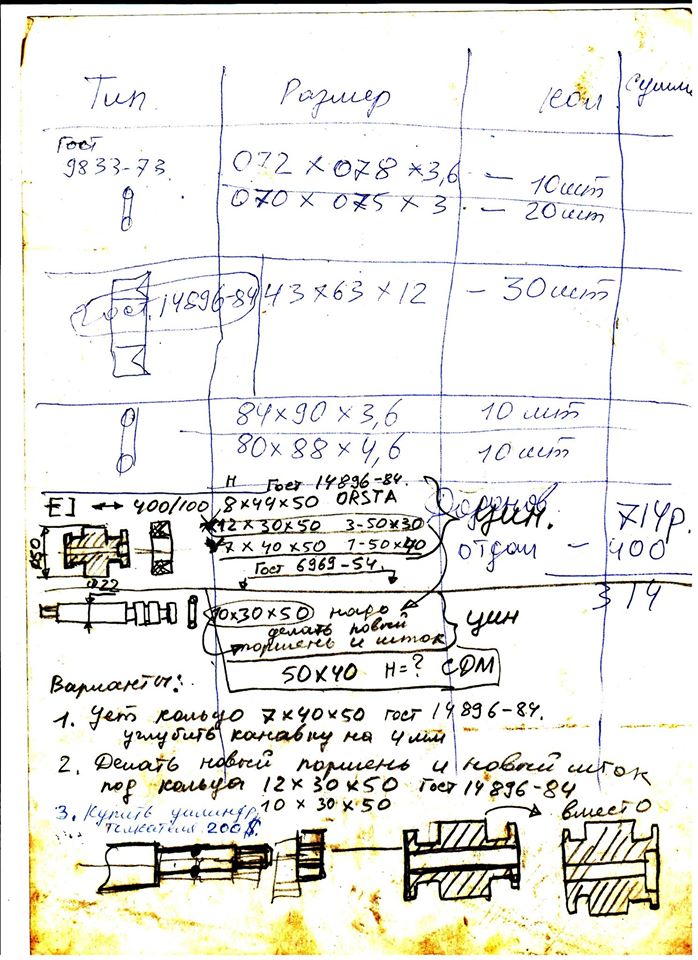 Тип Размер Кол. Сумма
Гост
9833-73. 072 × 078 × 3,6 — 10 шт
070 × 075 × 3 — 20 шт
Гост. 14896-84 43 × 63 × 12 — 30 шт
84×90 × 3,6 10 шт
80×88 × 4,6 10 шт
H Гост 14896-84.
E] ↔ 400/100 8×44×50 ORSTA
12×30×50 3-50×30 цин. 714р.
7 × 40 × 50 1-50×40 отдал — 400
Гост 6969-54.
ø50
ø22
314
10×30×50 надо
делать новый
поршень и шток цин
50×40 H=? СДМ
Варианты:
1. Уст кольцо 7×40×50 гост 14896-84.
углубить канавку на 4 мм
2. Делать новый поршень и новый шток
под кольца 12×30×50 Гост 14896-84
10 × 30 × 50
3. Купить цилиндр
толкателя 200$.
вместо